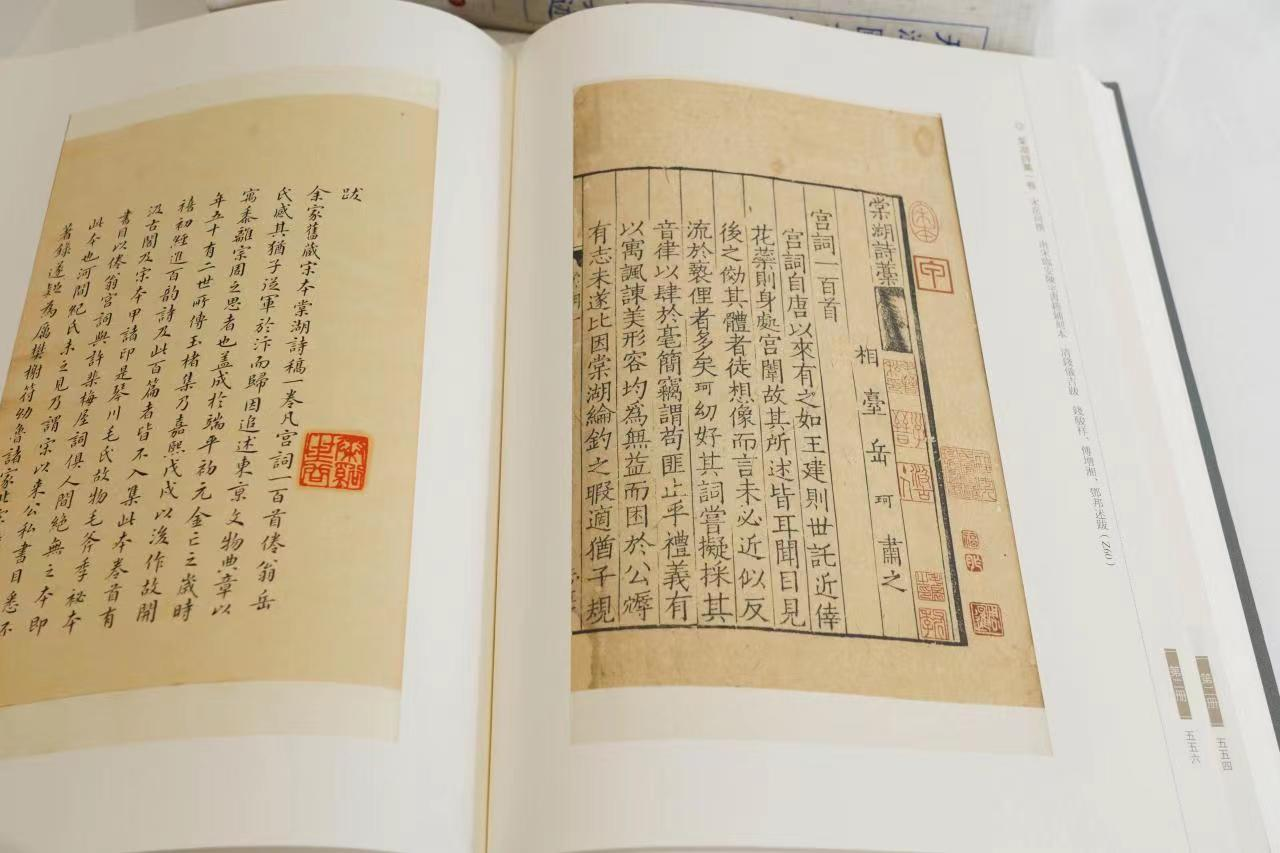 棠湖詩藁
相臺岳珂肅之
宮詞一百首
宮詞自唐以來有之如王建則世託近倖
花蘂則身處宮闈故其所述皆耳聞目見
後之倣其體者徒想像而言未必近似反
流於褻俚者多矣珂幼好其詞嘗擬採其
音律以肆於毫簡竊謂苟匪止乎禮義有
以寓諷諫美形容均為無益而困於公㙯
有志未遂比因棠湖綸釣之暇適猶子規
跋
余家舊蔵宗本棠湖詩稿一卷凡宫詞一百首倦翁岳
氏感其猶子從軍於汴而歸因追述東京文物典章以
寓黍離宗周之思者也盖成於端平初元金亡之歲時
年五十有二世所傳玉楮集乃嘉熙戊戌以後作故開
禧初經進百韵詩及此百篇者皆不入集此本卷首有
汲古閣及宗本甲諸印是琴川毛氏故物毛斧季祕本
書目以倦翁宫詞與許棐梅屋詞俱人間絶無之本即
此本也河間紀氏未之見乃謂宗以來公私書目悉不
著錄遂疑為厲樊榭符幼魯諸家
棠湖詩藁一卷 宋岳珂撰 南宋臨安陳宅書籍鋪刻本 清錢儀吉跋 錢駿祥、傅增湘、鄧邦述跋(Z60)
第二冊 五五四
第二冊 五五六